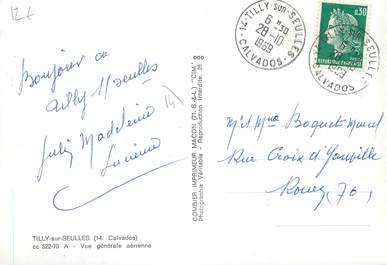 12€
Bonjour de
Tilly s/seulles
(14)
Julie Madeleine
Lucienne
TILLY-sur-SEULLES (14. Calvados)
cc 522-79 A - Vue générale aérienne
COMBIER IMPRIMEUR MACON (71. S.-&-L.) "CIM"
Photographie Véritable - Reproduction Interdite
14 - TILLY-SUR-SEULLES
6 H 30
28-10
1969
CALVADOS
0,30
M et Mme Boquet Marcel
Rue Croix d'Yonville
Rouen (76)